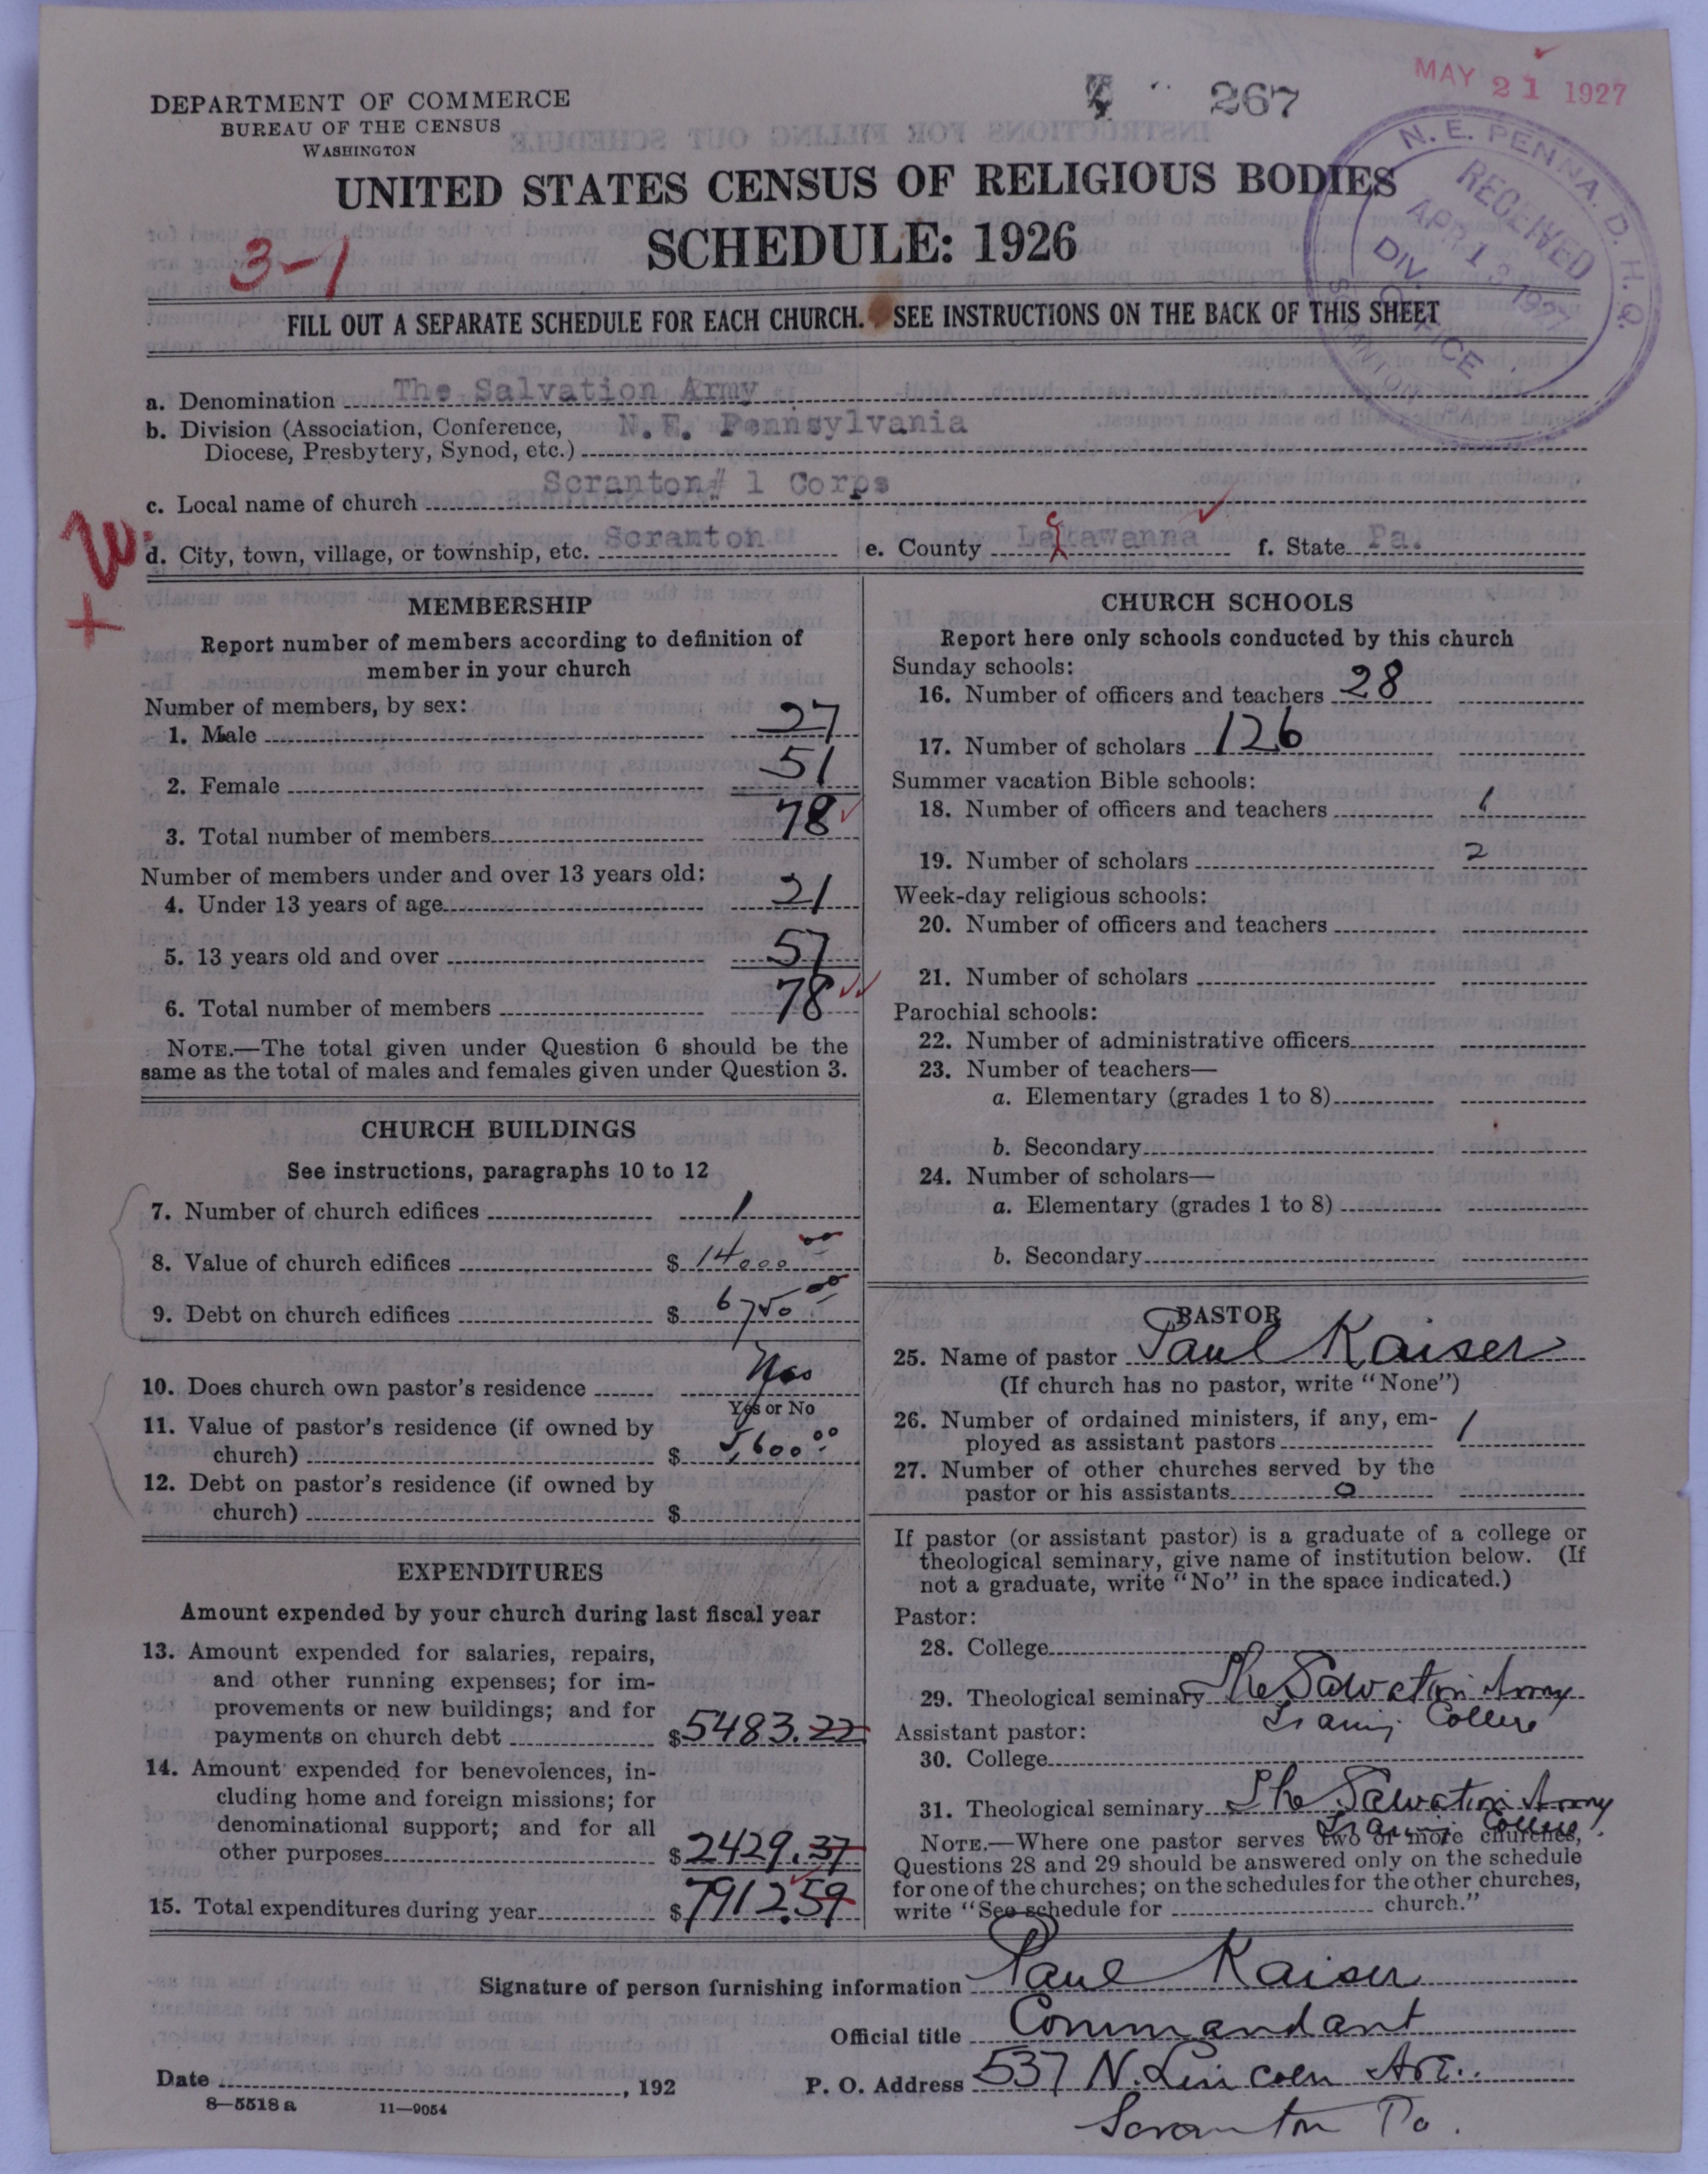 DEPARTMENT OF COMMERCE
BUREAU OF THE CENSUS
WASHINGTON
267
MAY 21 1927
N. E. PENNA. D. H. Q.
RECEIVED
APR 13 1927
DIV. OFFICE
UNITED STATES CENSUS OF RELIGIOUS BODIES
SCHEDULE: 1926
3-1
FILL OUT A SEPARATE SCHEDULE FOR EACH CHURCH. SEE INSTRUCTIONS ON THE BACK OF THIS SHEET
a. Denomination The Salvation Army
b. Division (Association, Conference, Diocese, Presbytery, Synod, etc.) N. E. Pennsylvania
c. Local name of church Scranton# 1 Corps
d. City, town, village, or township, etc. Scranton e. County Lakawanna f. State Pa.
c
W.
+
MEMBERSHIP
Report number of members according to definition of
member in your church
Number of members, by sex:
1. Male 27
2. Female 51
3. Total number of members 78
Number of members under and over 13 years old:
4. Under 13 years of age 21
5. 13 years old and over 57
6. Total number of members 78
NOTE.—The total given under Question 6 should be the
same as the total of males and females given under Question 3.
CHURCH BUILDINGS
See instructions, paragraphs 10 to 12
7. Number of church edifices 1
8. Value of church edifices $ 14000 00
9. Debt on church edifices $ 6750 00
10. Does church own pastor's residence Yes
Yes or No
11. Value of pastor's residence (if owned by
church) $ 5,600 00
12. Debt on pastor's residence (if owned by
church) $
EXPENDITURES
Amount expended by your church during last fiscal year
13. Amount expended for salaries, repairs,
and other running expenses; for im-
provements or new buildings; and for
payments on church debt $ 5483.22
14. Amount expended for benevolences, in-
cluding home and foreign missions; for
denominational support; and for all
other purposes $ 2429.37
15. Total expenditures during year $ 7912.59
CHURCH SCHOOLS
Report here only schools conducted by this church
Sunday schools:
16. Number of officers and teachers 28
17. Number of scholars 126
Summer vacation Bible schools:
18. Number of officers and teachers 1
19. Number of scholars 2
Week-day religious schools:
20. Number of officers and teachers
21. Number of scholars
Parochial schools:
22. Number of administrative officers
23. Number of teachers—
a. Elementary (grades 1 to 8)
b. Secondary
24. Number of scholars—
a. Elementary (grades 1 to 8)
b. Secondary
PASTOR
25. Name of pastor Paul Kaiser
(If church has no pastor, write "None")
26. Number of ordained ministers, if any, em-
ployed as assistant pastors 1
27. Number of other churches served by the
pastor or his assistants 0
If pastor (or assistant pastor) is a graduate of a college or
theological seminary, give name of institution below. (If
not a graduate, write "No" in the space indicated.)
Pastor:
28. College
29. Theological seminary The Salvation Army
Training College
Assistant pastor:
30. College
31. Theological seminary The Salvation Army
Training College.
NOTE.—Where one pastor serves two or more churches,
Questions 28 and 29 should be answered only on the schedule
for one of the churches; on the schedules for the other churches,
write "See schedule for church."
Signature of person furnishing information Paul Kaiser
Official title Commandant
Date , 192 P. O. Address 537 N. Lincoln Ave.
Scranton Pa.
8—5518 a 11—9054